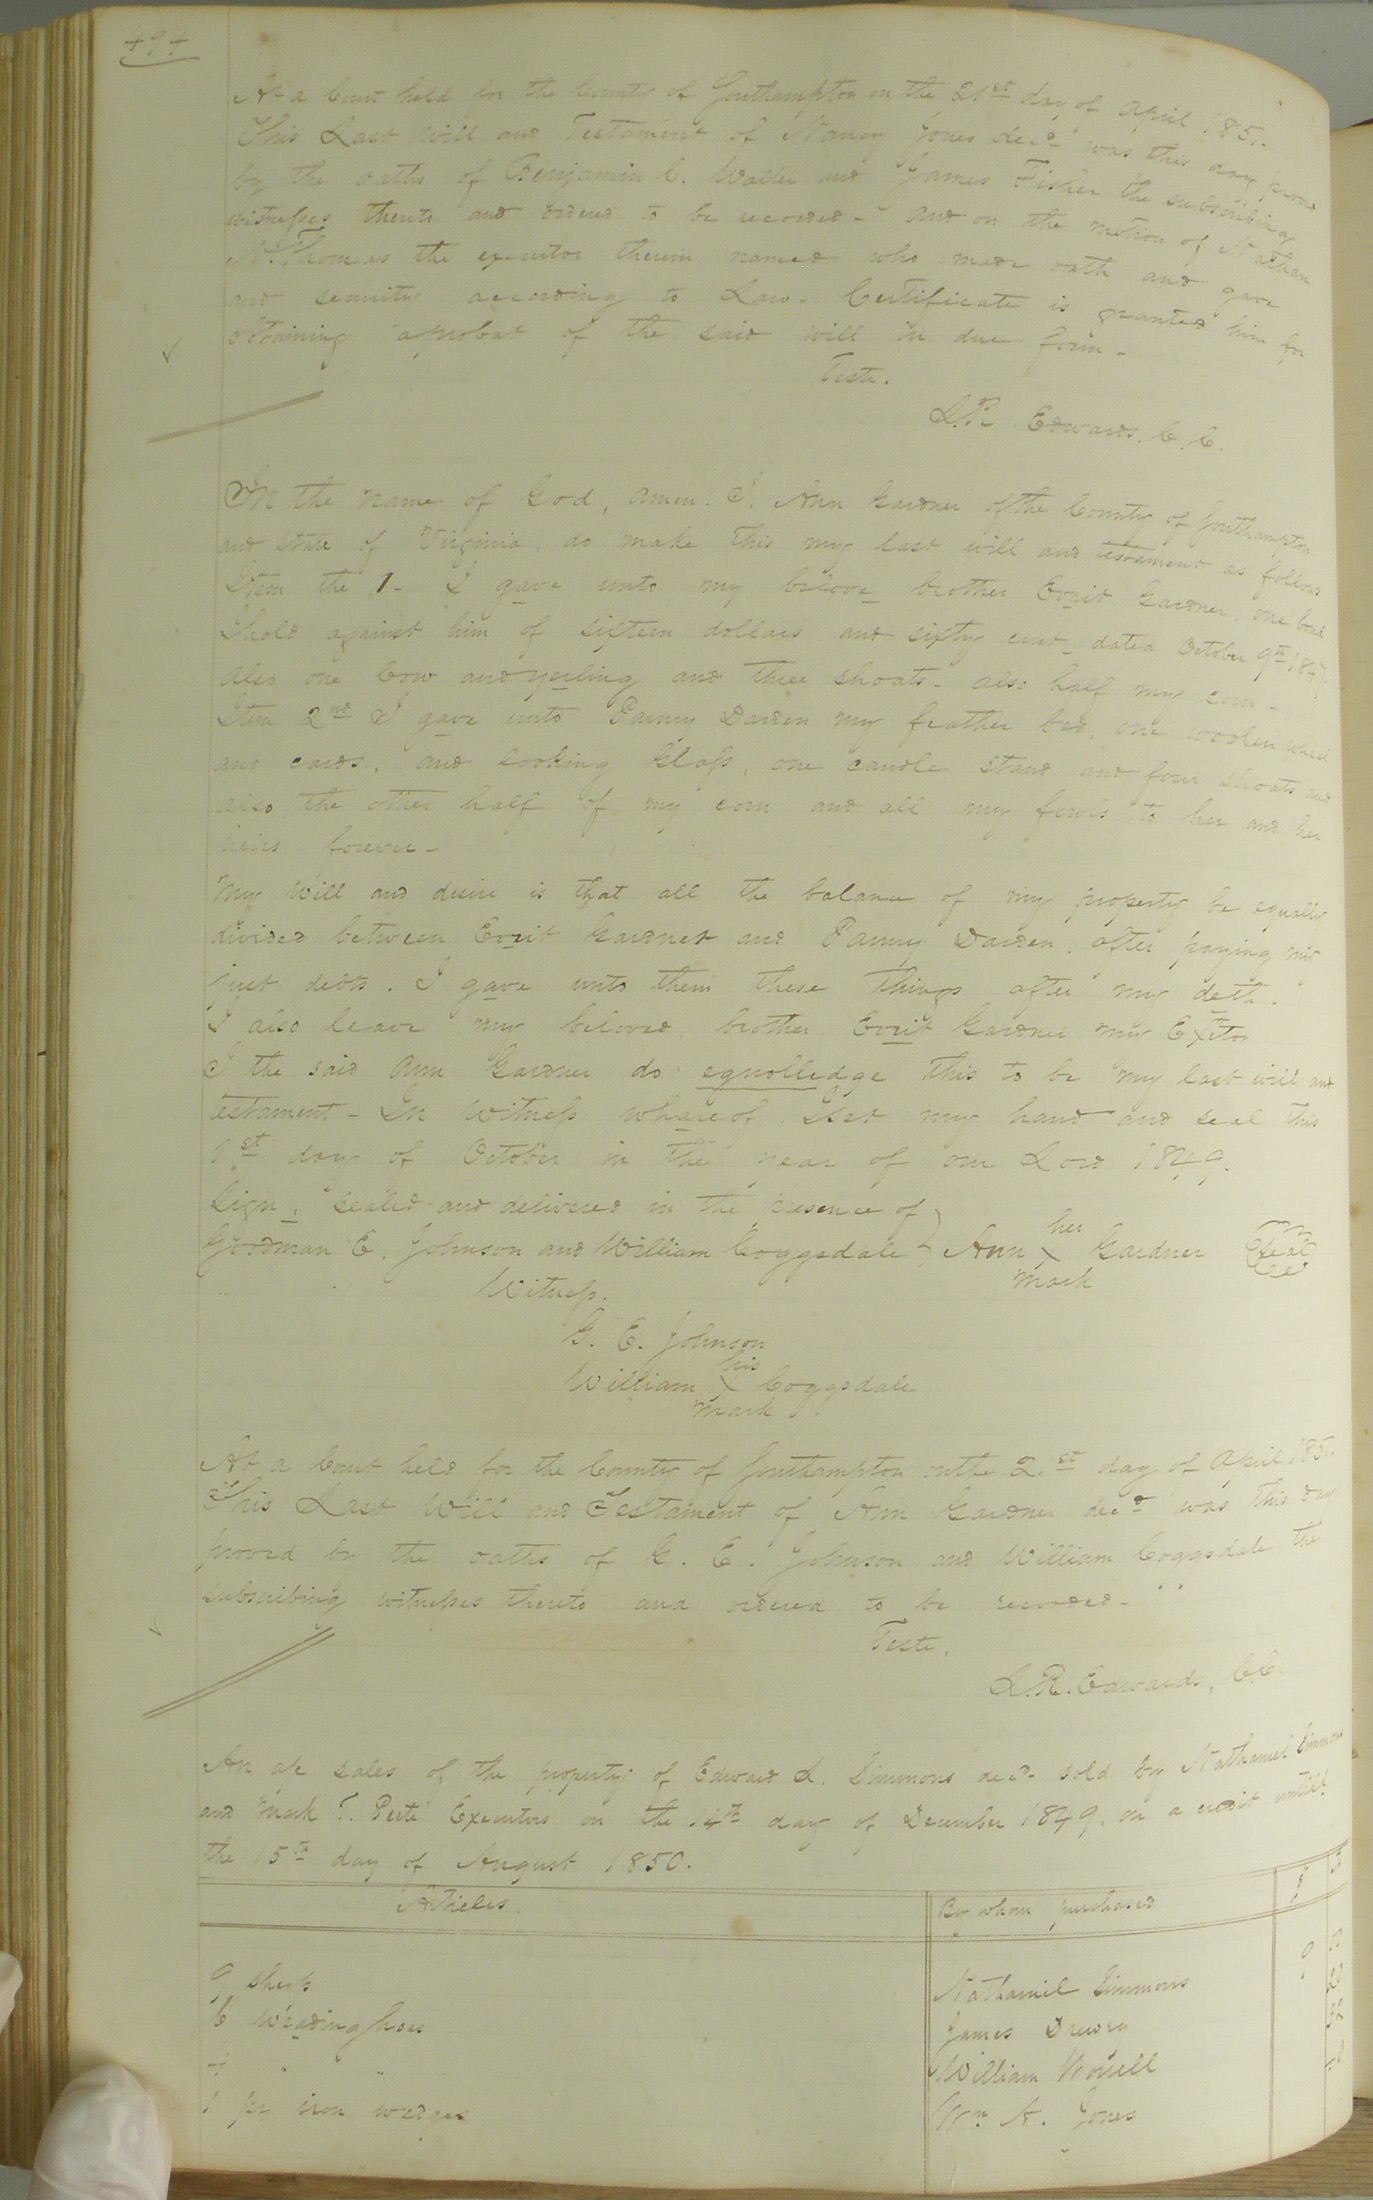 494
At a Court held for the County of Southampton on the 21st day of April 1851.
This Last Will and Testament of Nancy Jones decd was this day proved
by the oaths of Benjamin C. Waller and James Fisher the subscribing
witnesses thereto and ordered to be recorded - and on the motion of Nathan
N. Thomas the executor therein named who made oath and gave
and security according to Law. Certificate is granted him for
obtaining a probat of the said will in due form -
Teste.
L.R Edwards, C. C.
In the name of God, amen. I, Ann Gardner of the County of Southampton
and state of Virginia, do make this my last will and testament as follows
Item the 1 - I gave unto my belove brother Evrit Gardner, one bond
I hold against him of sixteen dollars and sixty cent dated October 9th 1847.
also one Cow and yerling and three shoats - also half my corn -
Item 2nd I gave unto Pamy Darden my feather bed, one woolen wheel
and cards, and looking Glass, one candle stand and four shoats and
also the other half of my corn and all my fowls to her and her
heirs forever -
My Will and desire is that all the balance of my property be equally
divided between Evrit Gardner and Pamy Darden, after paying my
just debts. I gave unto them these things after my deth.
I also leave my beloved brother Evrit Gardner my Exetor
I the said Ann Gardner do eqnolledge this to be my last will and
testament - In Witness whareof I set my hand and seal this
1st day of October in the year of our Lord 1849.
Sign, sealed and delivered in the presence of
Goodman E. Johnson and William Coggsdale } Ann her X mark Gardner (Seal)
Witness.
G. E. Johnson
William his X mark Coggsdale
At a Court held for the County of Southampton on the 21st day of April 1851.
This Last Will and Testament of Ann Gardner decd was this day
proved by the oaths of G. E. Johnson and William Coggsdale the
subscribing witnesses thereto and ordered to be recorded -
Teste.
L.R. Edwards, C.C.
An a/c sales of the property of Edward L. Simmons decd sold by Nathaniel Simmons
and Mark T. Pete Executors on the 14th day of December 1849, on a credit untill
the 15th day of August 1850.
Articles. By whom purchased
9 sheep Nathaniel Simmons
6 Weading hoes James Drewry
4 " " William Worrell
1 pr iron wedges Wm A. Jones